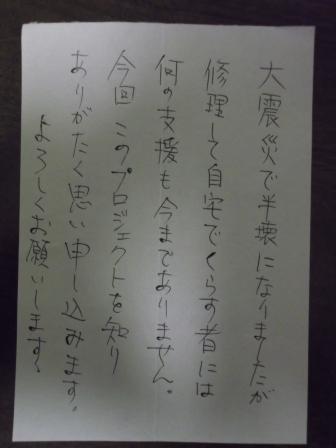 大震災で半壊になりましたが
修理して自宅でくらす者には
何の支援も今までありません。
今回このプロジェクトを知り
ありがたく思い申し込みます。
よろしくお願いします。